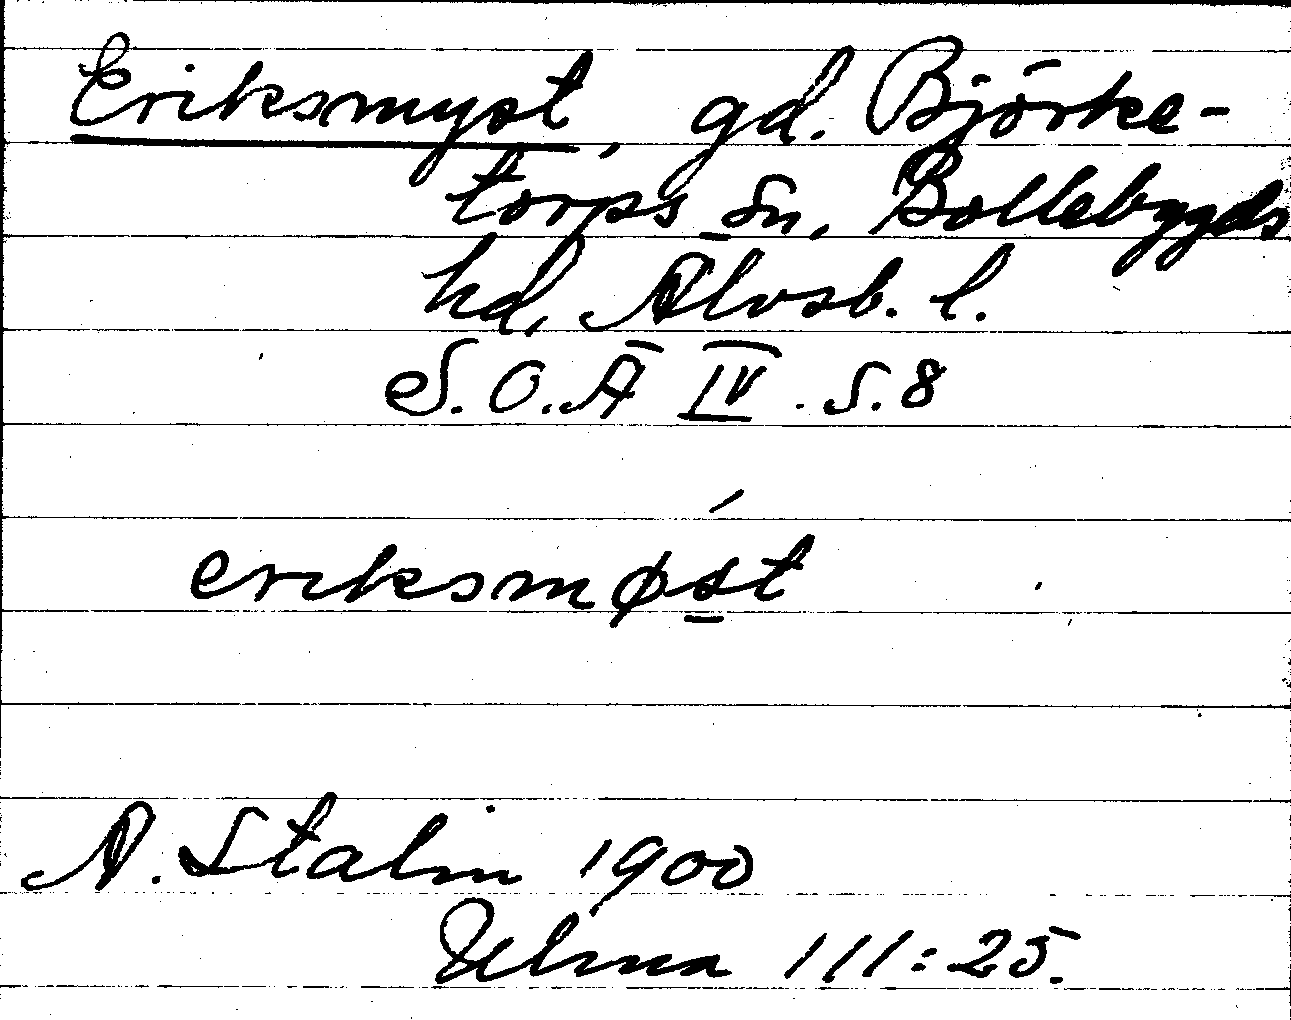 Eriksmyst, gd. Björke-
torps sn, Bollebygds
hd, Älvsb. l.
S.O.Ä IV. S.8
eriksmǿst
A. Stalin 1900
Ulma 111:25.